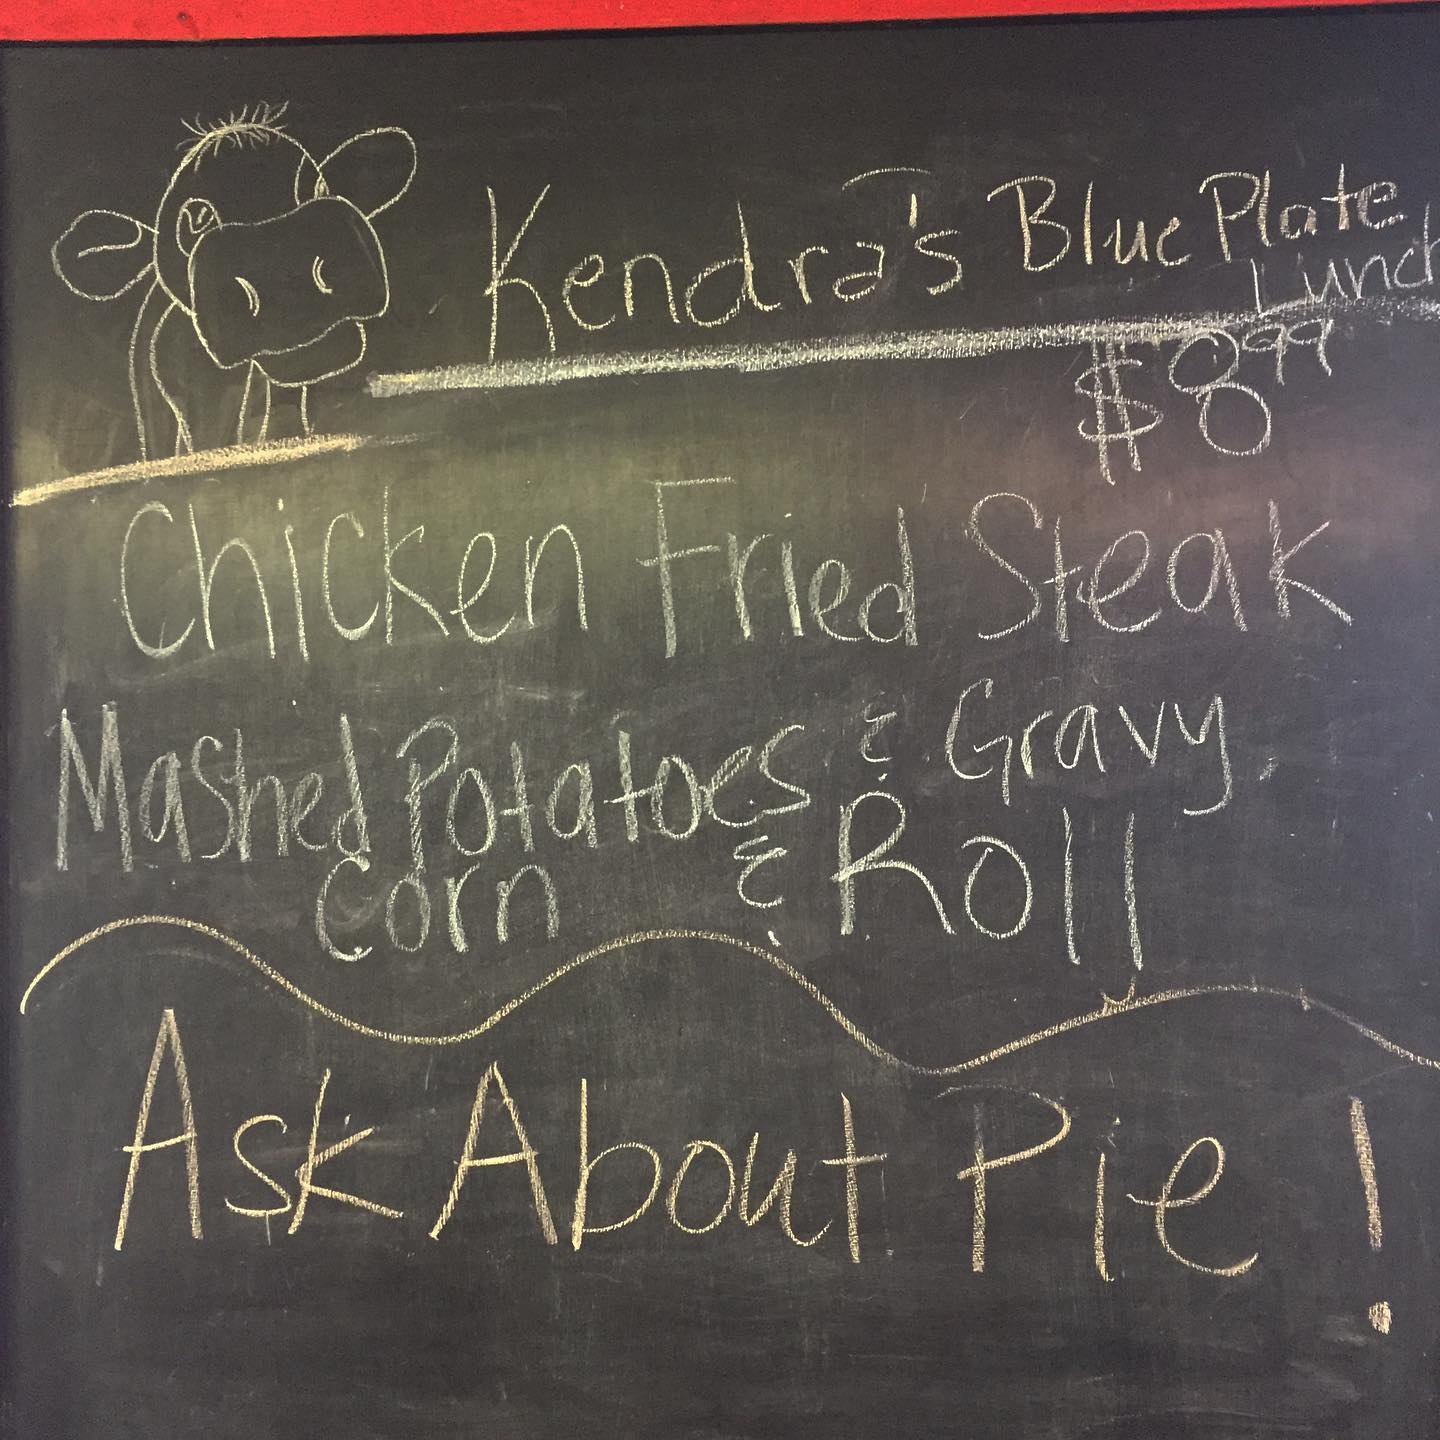 Kendra's Blue Plate
Lunch
$8.99
Chicken Fried Steak
Mashed Potatoes & Gravy,
Corn & Roll
Ask About Pie!